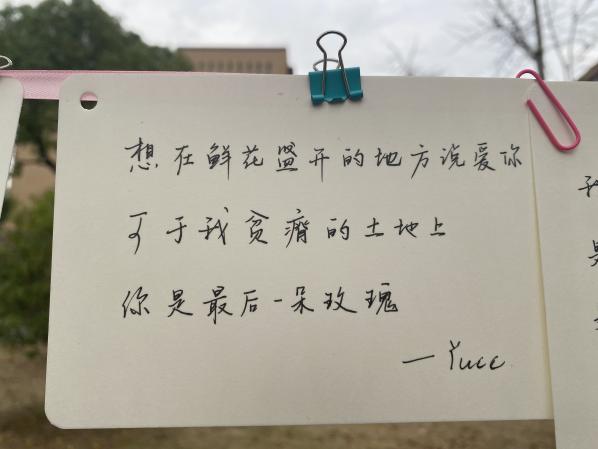 想在鲜花盛开的地方说爱你
可于我贫瘠的土地上
你是最后一朵玫瑰
—Yucc